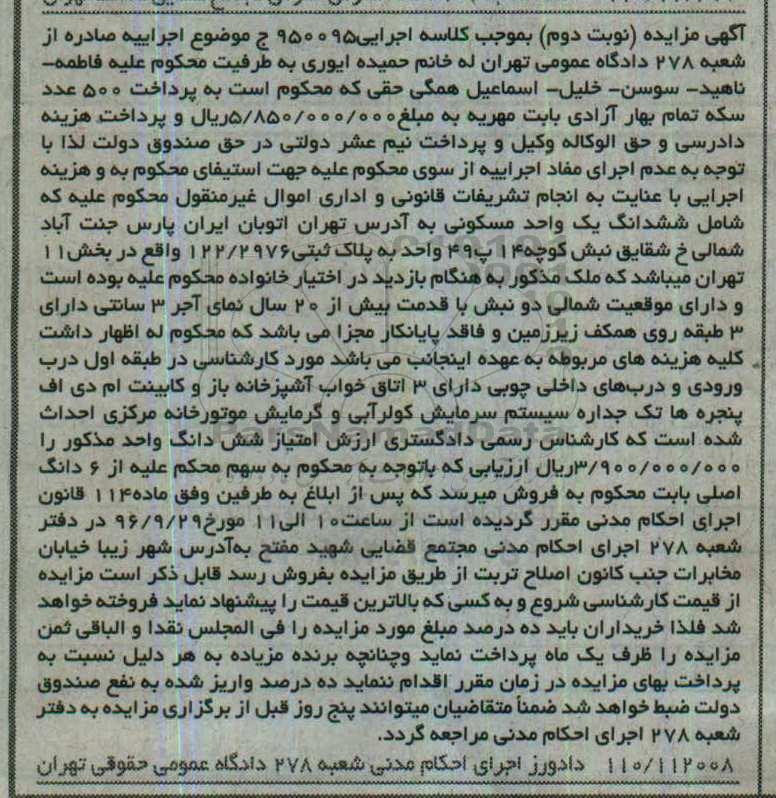 آگهی مزایده (نوبت دوم) بموجب کلاسه اجرایی۹۵۰۰۹۵ ج موضوع اجراییه صادره از
شعبه ۲۷۸ دادگاه عمومی تهران له خانم حمیده ایوری به طرفیت محکوم علیه فاطمه-
ناهید- سوسن- خلیل- اسماعیل همگی حقی که محکوم است به پرداخت ۵۰۰ عدد
سکه تمام بهار آزادی بابت مهریه به مبلغ۵/۸۵۰/۰۰۰/۰۰۰ریال و پرداخت هزینه
دادرسی و حق الوکاله وکیل و پرداخت نیم عشر دولتی در حق صندوق دولت لذا با
توجه به عدم اجرای مفاد اجراییه از سوی محکوم علیه جهت استیفای محکوم به و هزینه
اجرایی با عنایت به انجام تشریفات قانونی و اداری اموال غیرمنقول محکوم علیه که
شامل ششدانگ یک واحد مسکونی به آدرس تهران اتوبان ایران پارس جنت آباد
شمالی خ شقایق نبش کوچه۱۴ پ۴۹ واحد به پلاک ثبتی۱۲۲/۲۹۷۶ واقع در بخش۱۱
تهران میباشد که ملک مذکور به هنگام بازدید در اختیار خانواده محکوم علیه بوده است
و دارای موقعیت شمالی دو نبش با قدمت بیش از ۲۰ سال نمای آجر ۳ سانتی دارای
۳ طبقه روی همکف زیرزمین و فاقد پایانکار مجزا می باشد که محکوم له اظهار داشت
کلیه هزینه های مربوطه به عهده اینجانب می باشد مورد کارشناسی در طبقه اول درب
ورودی و درب‌های داخلی چوبی دارای ۳ اتاق خواب آشپزخانه باز و کابینت ام دی اف
پنجره ها تک جداره سیستم سرمایش کولرآبی و گرمایش موتورخانه مرکزی احداث
شده است که کارشناس رسمی دادگستری ارزش امتیاز شش دانگ واحد مذکور را
۳/۹۰۰/۰۰۰/۰۰۰ریال ارزیابی که باتوجه به محکوم به سهم محکم علیه از ۶ دانگ
اصلی بابت محکوم به فروش میرسد که پس از ابلاغ به طرفین وفق ماده۱۱۴ قانون
اجرای احکام مدنی مقرر گردیده است از ساعت۱۰ الی۱۱ مورخ۹۶/۹/۲۹ در دفتر
شعبه ۲۷۸ اجرای احکام مدنی مجتمع قضایی شهید مفتح به‌آدرس شهر زیبا خیابان
مخابرات جنب کانون اصلاح تربت از طریق مزایده بفروش رسد قابل ذکر است مزایده
از قیمت کارشناسی شروع و به کسی که بالاترین قیمت را پیشنهاد نماید فروخته خواهد
شد فلذا خریداران باید ده درصد مبلغ مورد مزایده را فی المجلس نقدا و الباقی ثمن
مزایده را ظرف یک ماه پرداخت نماید وچنانچه برنده مزیاده به هر دلیل نسبت به
پرداخت بهای مزایده در زمان مقرر اقدام ننماید ده درصد واریز شده به نفع صندوق
دولت ضبط خواهد شد ضمناً متقاضیان میتوانند پنج روز قبل از برگزاری مزایده به دفتر
شعبه ۲۷۸ اجرای احکام مدنی مراجعه گردد.
۱۱۰/۱۱۲۰۰۸ دادورز اجرای احکام مدنی شعبه ۲۷۸ دادگاه عمومی حقوقی تهران